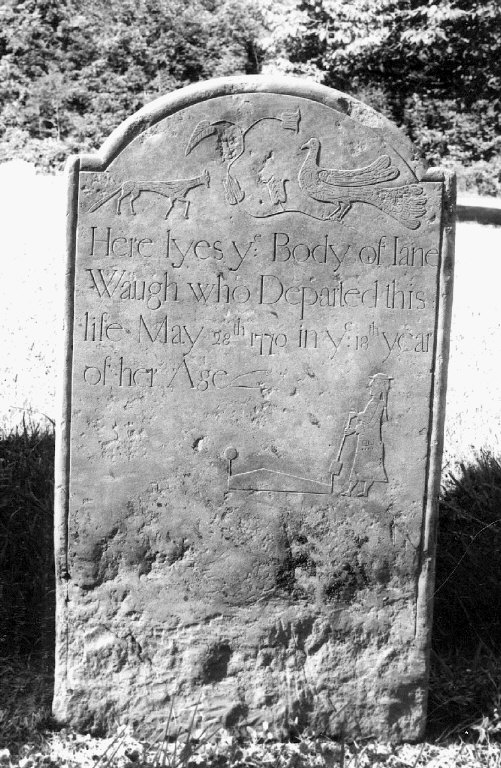 Here lyes yᵉ Body of Iane
Waugh who Departed this
life May 28ᵗʰ 1770 in yᵉ 18ᵗʰ year
of her Age